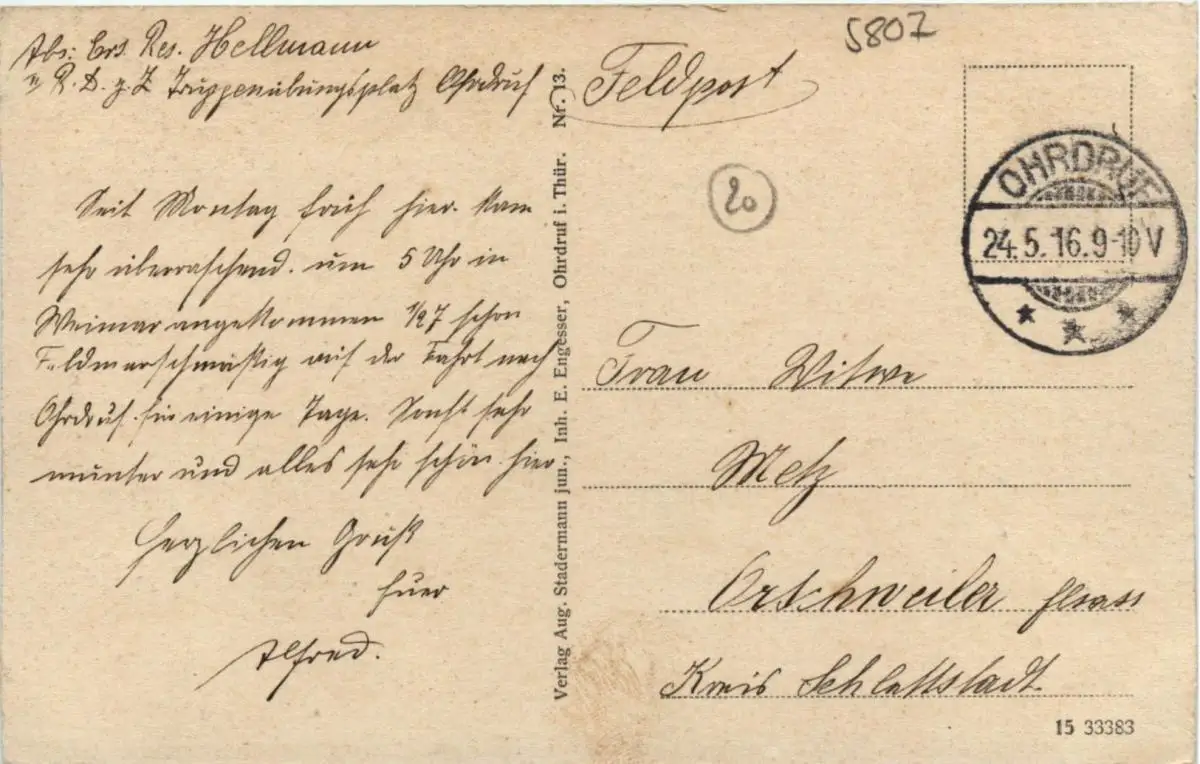 Abs: Ers. Res. Hellmann
z. Z. Truppenübungsplatz Ohrdruf
Seit Montag früh hier. Kam
sehr überraschend. um 5 Uhr in
Weimar angekommen 1/27 schon
Feldmarschmäßig auf der Fahrt nach
Ohrdruf. für einige Tage. Sonst sehr
munter und alles sehr schön hier
Herzlichen Gruß
Euer
Alfred.
Verlag Aug. Stadermann jun., Inh. E. Engesser, Ohrdruf i. Thür. Nr. 13.
5807
Feldpost
20
OHRDRUF
24.5.16.9-10V
Frau Witwe
Metz
Orschweiler Elsass
Kreis Schlettstadt
15 33383